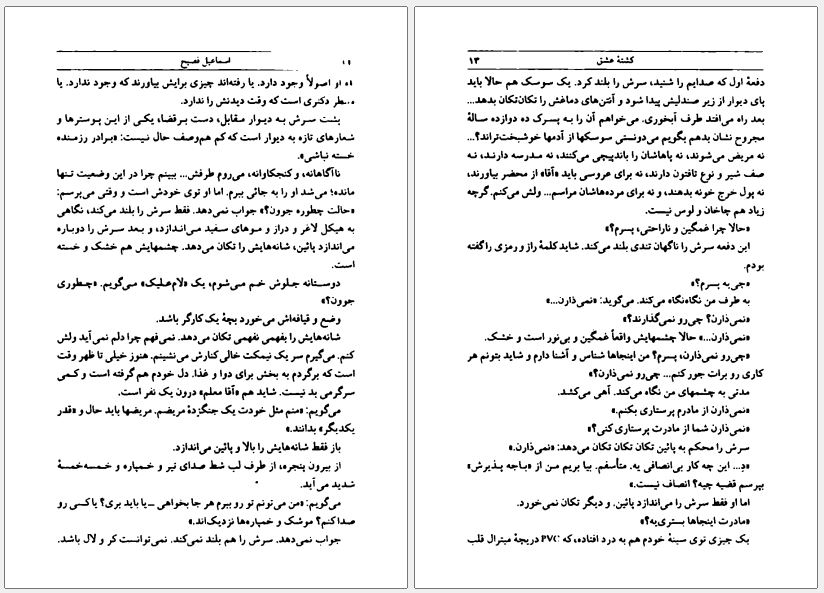 اسماعیل فصیح
او اصولاً وجود دارد. یا رفته‌اند چیزی برایش بیاورند که وجود ندارد. یا
دکتری است که وقت دیدنش را ندارد.
پشت سرش به دیوار مقابل، دست برقضا، یکی از این پوسترها و
شعارهای تازه به دیوار است که کم هم‌وصف حال نیست: «برادر رزمنده
خسته نباشی».
ناآگاهانه، و کنجکاوانه، می‌روم طرفش... ببینم چرا در این وضعیت تنها
مانده؛ می‌شد او را به جائی ببرم. اما او توی خودش است و وقتی می‌پرسم:
«حالت چطوره جوون؟» جواب نمی‌دهد. فقط سرش را بلند می‌کند، نگاهی
به هیکل لاغر و دراز و موهای سفید می‌اندازد، و بعد سرش را دوباره
می‌اندازد پائین، شانه‌هایش را تکان می‌دهد. چشمهایش هم خشک و خسته
است.
دوستانه جلوش خم می‌شوم، یک «لام‌علیک» می‌گویم. «چطوری
جوون؟»
وضع و قیافه‌اش می‌خورد بچهٔ یک کارگر باشد.
شانه‌هایش را بفهمی نفهمی تکان می‌دهد. نمی‌فهم چرا دلم نمی‌آید ولش
کنم. می‌گیرم سر یک نیمکت خالی کنارش می‌نشینم. هنوز خیلی تا ظهر وقت
است که برگردم به بخش برای دوا و غذا. دل خودم هم گرفته است و کمی
سرگرمی بد نیست. شاید هم «آقا معلم» درون یک نفر است.
می‌گویم: «منم مثل خودت یک جنگزدهٔ مریضم. مریضها باید حال و «قدر
یکدیگر» بدانند.»
باز فقط شانه‌هایش را بالا و پائین می‌اندازد.
از بیرون پنجره، از طرف لب شط صدای تیر و خمپاره و خمسه‌خمسهٔ
شدید می‌آید.
می‌گویم: «من می‌تونم تو رو ببرم هر جا بخواهی ـ یا باید بری؟ یا کسی رو
صدا کنم؟ موشک و خمپاره‌ها نزدیک‌اند.»
جواب نمی‌دهد. سرش را هم بلند نمی‌کند. نمی‌توانست کر و لال باشد.
کشتهٔ عشق ۱۳
دفعهٔ اول که صدایم را شنید، سرش را بلند کرد. یک سوسک هم حالا باید
پای دیوار از زیر صندلیش پیدا شود و آنتن‌های دماغش را تکان‌تکان بدهد...
بعد راه می‌افتد طرف آبخوری. می‌خواهم آن را به پسرک ده دوازده سالهٔ
مجروح نشان بدهم بگویم می‌دونستی سوسکها از آدمها خوشبخت‌تراند؟...
نه مریض می‌شوند، نه پاهاشان را باندپیچی می‌کنند، نه مدرسه دارند، نه
صف شیر و نوع تافتون دارند، نه برای عروسی باید «آقا» از محضر بیاورند،
نه پول خرج خونه بدهند، و نه برای مرده‌هاشان مراسم... ولش می‌کنم. گرچه
زیاد هم چاخان و لوس نیست.
«حالا چرا غمگین و ناراحتی، پسرم؟»
این دفعه سرش را ناگهان تندی بلند می‌کند. شاید کلمهٔ راز و رمزی را گفته
بودم.
«چی‌یه پسرم؟»
به طرف من نگاه‌نگاه می‌کند. می‌گوید: «نمی‌ذارن...»
«نمی‌ذارن؟ چی‌رو نمی‌گذارند؟»
«نمی‌ذارن...» حالا چشمهایش واقعاً غمگین و بی‌نور است و خشک.
«چی‌رو نمی‌ذارن، پسرم؟ من اینجاها شناس و آشنا دارم و شاید بتونم هر
کاری رو برات جور کنم... چی‌رو نمی‌ذارن؟»
مدتی به چشمهای من نگاه می‌کند. آهی می‌کشد.
«نمی‌ذارن از مادرم پرستاری بکنم.»
«نمی‌ذارن شما از مادرت پرستاری کنی؟»
سرش را محکم به پائین تکان تکان می‌دهد: «نمی‌ذارن.»
«دِ... این چه کار بی‌انصافی یه. متأسفم. بیا بریم من از «باجه پذیرش»
بپرسم قضیه چیه؟ انصاف نیست.»
اما او فقط سرش را می‌اندازد پائین. و دیگر تکان نمی‌خورد.
«مادرت اینجاها بستری‌یه؟»
یک چیزی توی سینهٔ خودم هم به درد افتاده، که PVC دریچهٔ میترال قلب